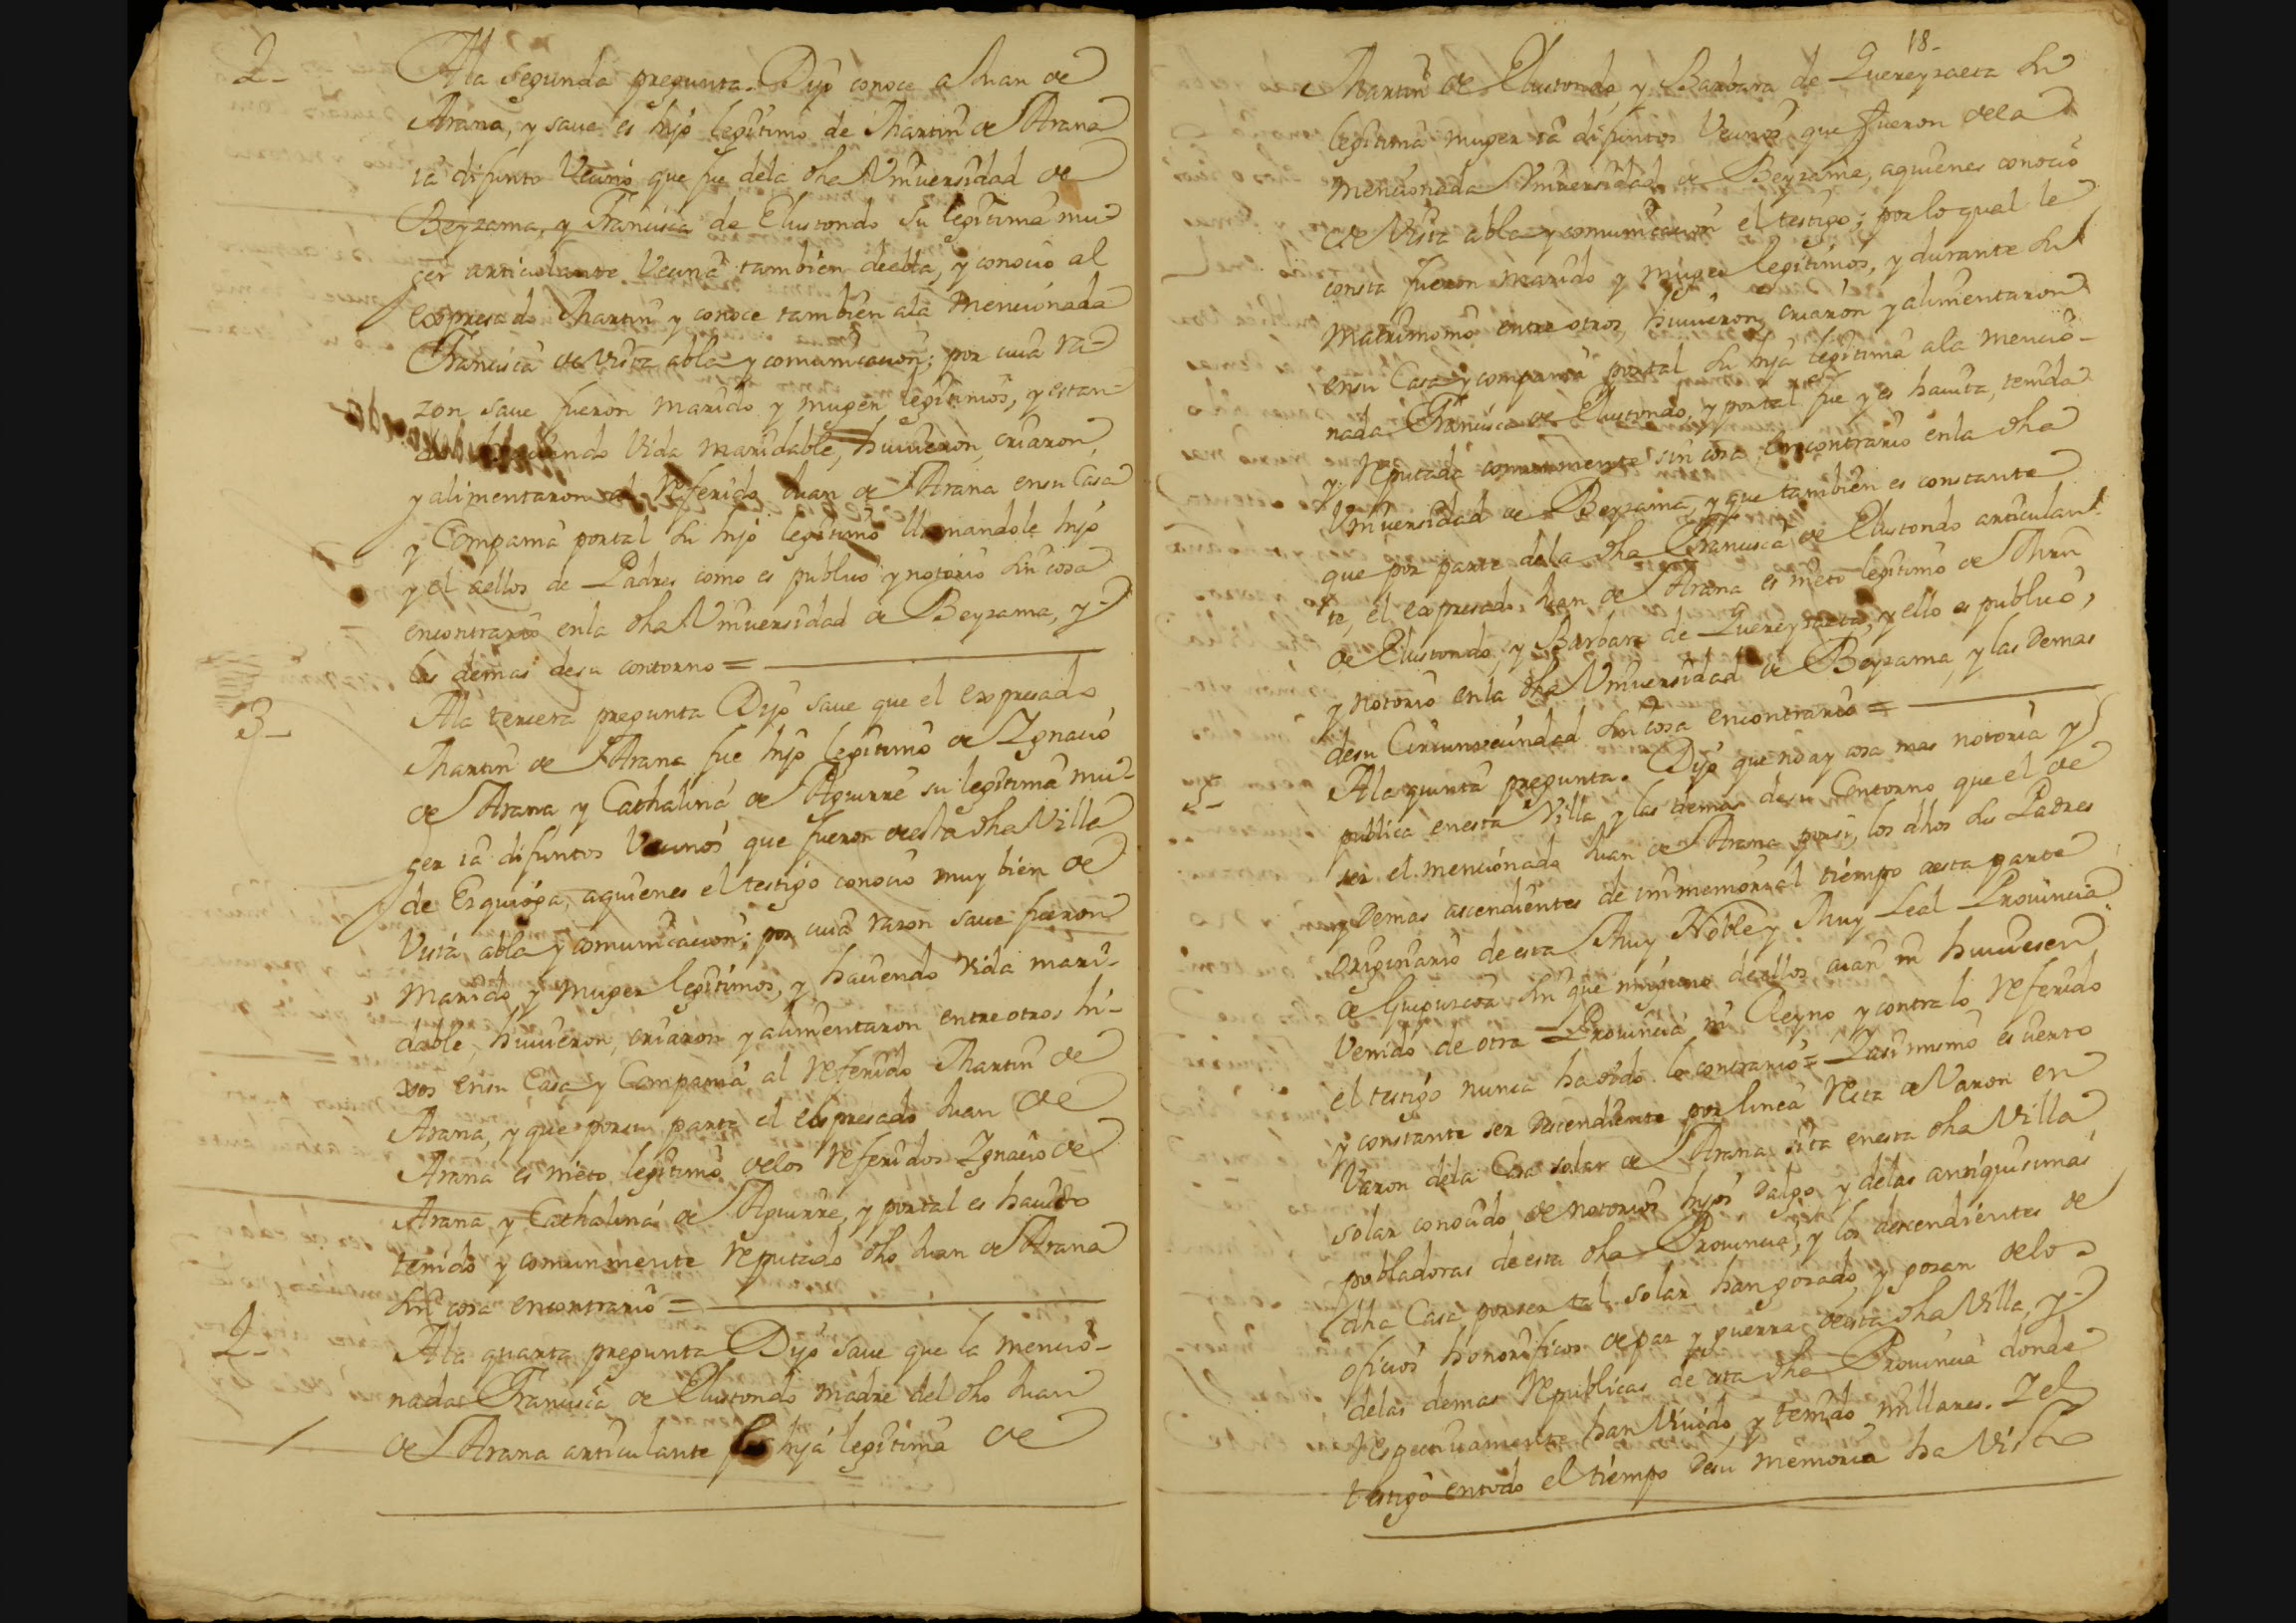 2-
A la segunda pregunta. Dijo conoce a Juan de
Arana, y saue es hijo legitimo de Martin de Arana
ia difunto Vecino que fue dela dha Vniuersidad de
Beyzama, y Francisca de Elustondo su legitima mu-
ger articulante. Vecina tambien deella, y conocio al
expresado Martin y conoce tambien ala mencionada
Francisca de vista abla y comunicacion; por cuia ra-
zon saue fueron marido y muger legitimos, y estan-
do haciendo Vida maridable, huuieron, criaron,
y alimentaron al referido Juan de Arana ensu Casa
y Compania portal su hijo legitimo llamandole hijo
y el aellos de Padres como es publico y notorio sin cosa
encontrario enla dha Vniuersidad de Beyzama, y
las demas desu contorno =
3-
Ala tercera pregunta Dijo saue que el expresado
Martin de Arana fue hijo legitimo de Ignacio
de Arana y Cathalina de Aguirre su legitima mu-
ger ia difuntos Vecinos que fueron desta dha Villa
de Ezquioga, aquienes el testigo conocio muy bien de
Vista, abla y comunicacion; por cuia razon saue fueron
Marido y muger legitimos, y haciendo vida mari-
dable, huuieron, criaron y alimentaron entre otros hi-
xos ensu Casa y Compania al referido Martin de
Arana, y que porsu parte el expresado Juan de
Arana es nieto legitimo delos referidos Ignacio de
Arana y Cathalina de Aguirre, y portal es hauido
tenido y comunmente reputado dho Juan de Arana
sin cosa encontrario =
4-
Ala quarta pregunta Dijo saue que la mencio-
nada Francisca de Elustondo madre del dho Juan
de Arana articulante fue hija legitima de
18-
Martin de Elustondo, y Barbara de Quereyzaeta su
legitima muger ia difuntos Vecinos que fueron dela
mencionada Vniuersidad de Beyzama, aquienes conocio
de Vista abla y comunicacion el testigo; por lo qual le
consta fueron marido y muger legitimos, y durante su
Matrimonio entre otros, huuieron, criaron y alimentaron
ensu Casa y compania portal su hija legitima ala mencio-
nada Francisca de Elustondo, y portal fue y es hauida, tenida
y reputada comunmente sin cosa encontrario enla dha
Vniuersidad de Beyzama, y que tambien es constante
que por parte dela dha Francisca de Elustondo articulan-
te, el expresado Juan de Arana es nieto legitimo de Mrn
de Elustondo, y Barbara de Quereyzaeta, y ello es publico,
y notorio enla dha Vniuersidad de Beyzama, y las Demas
desu Circunvecindad sin cosa encontrario =
5-
Ala quinta pregunta. Dijo que no ay cosa mas notoria y
publica enesta Villa y las demas desu Contorno que el de
ser el mencionado Juan de Arana porsi, los dhos sus Padres
y Demas ascendientes de inmemorial tiempo aesta parte
originario de esta Muy Noble y Muy Leal Prouincia
de Guipuzcoa sin que ninguno deellos aian ni huuiesen
Venido de otra Prouincia ni Reyno y contra lo referido
el testigo nunca ha oydo lo contrario = Yasi mismo es cierto
y constante ser descendiente por linea recta de Varon en
Varon dela Casa solar de Arana sita enesta dha Villa
solar conocido de notorios hijos dalgo y delas antiquisimas
pobladoras de esta dha Prouincia, y los descendientes de
dha Casa por ser tal solar han gozado y gozan delos
oficios honorificos de paz y guerra desta dha Villa, y
delas demas Republicas de esta dha Prouincia donde
respectiuamente han Viuido y tenido millares. Y el
testigo entodo el tiempo desu memoria ha visto